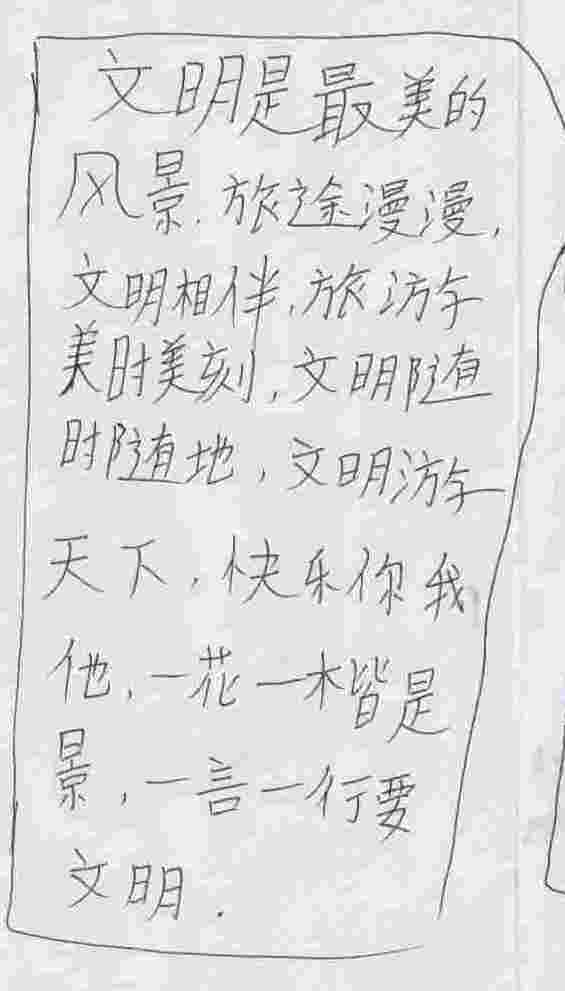 文明是最美的
风景.旅途漫漫,
文明相伴,旅游
美时美刻,文明随
时随地,文明游
天下,快乐你我
他,一花一木皆是
景,一言一行要
文明.